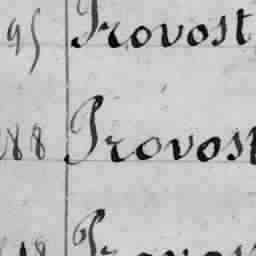 95 Provost
88 Provost